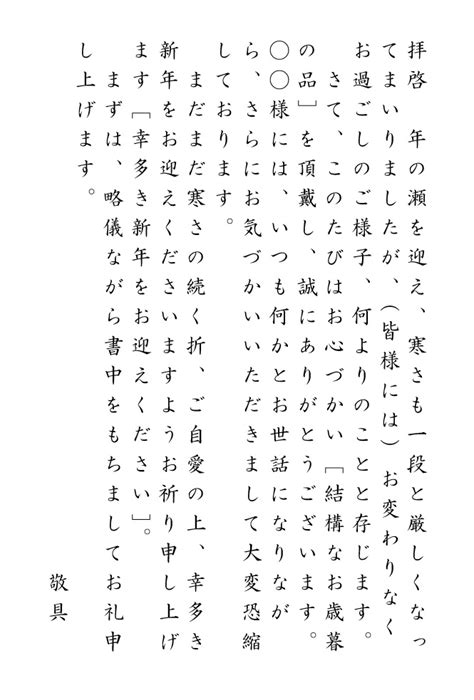 拝啓　年の瀬を迎え、寒さも一段と厳しくなっ
てまいりましたが、（皆様には）お変わりなく
お過ごしのご様子、何よりのことと存じます。
　さて、このたびはお心づかい［結構なお歳暮
の品］を頂戴し、誠にありがとうございます。
〇〇様には、いつも何かとお世話になりなが
ら、さらにお気づかいいただきまして大変恐縮
しております。
　まだまだ寒さの続く折、ご自愛の上、幸多き
新年をお迎えくださいますようお祈り申し上げ
ます［幸多き新年をお迎えください］。
　まずは、略儀ながら書中をもちましてお礼申
し上げます。
敬具